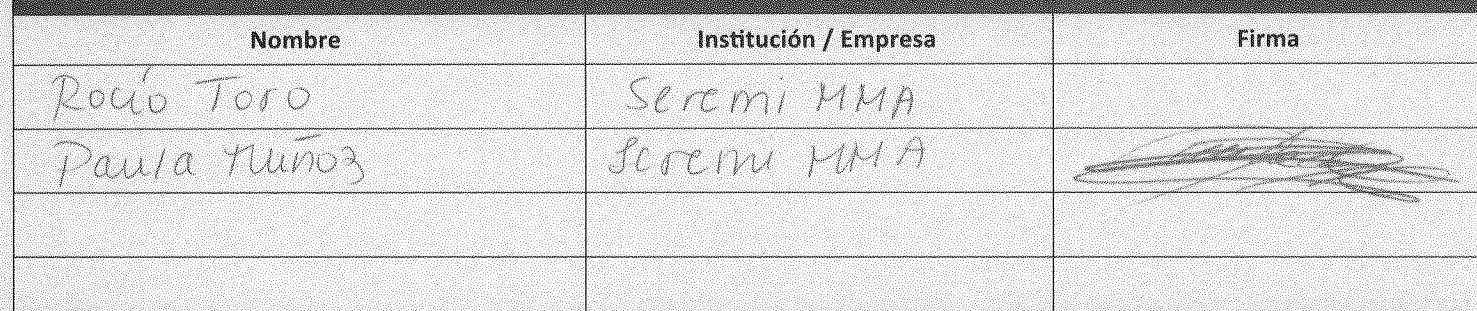 Nombre Institución / Empresa Firma
Rocío Toro Seremi MMA
Paula Muñoz Seremi MMA